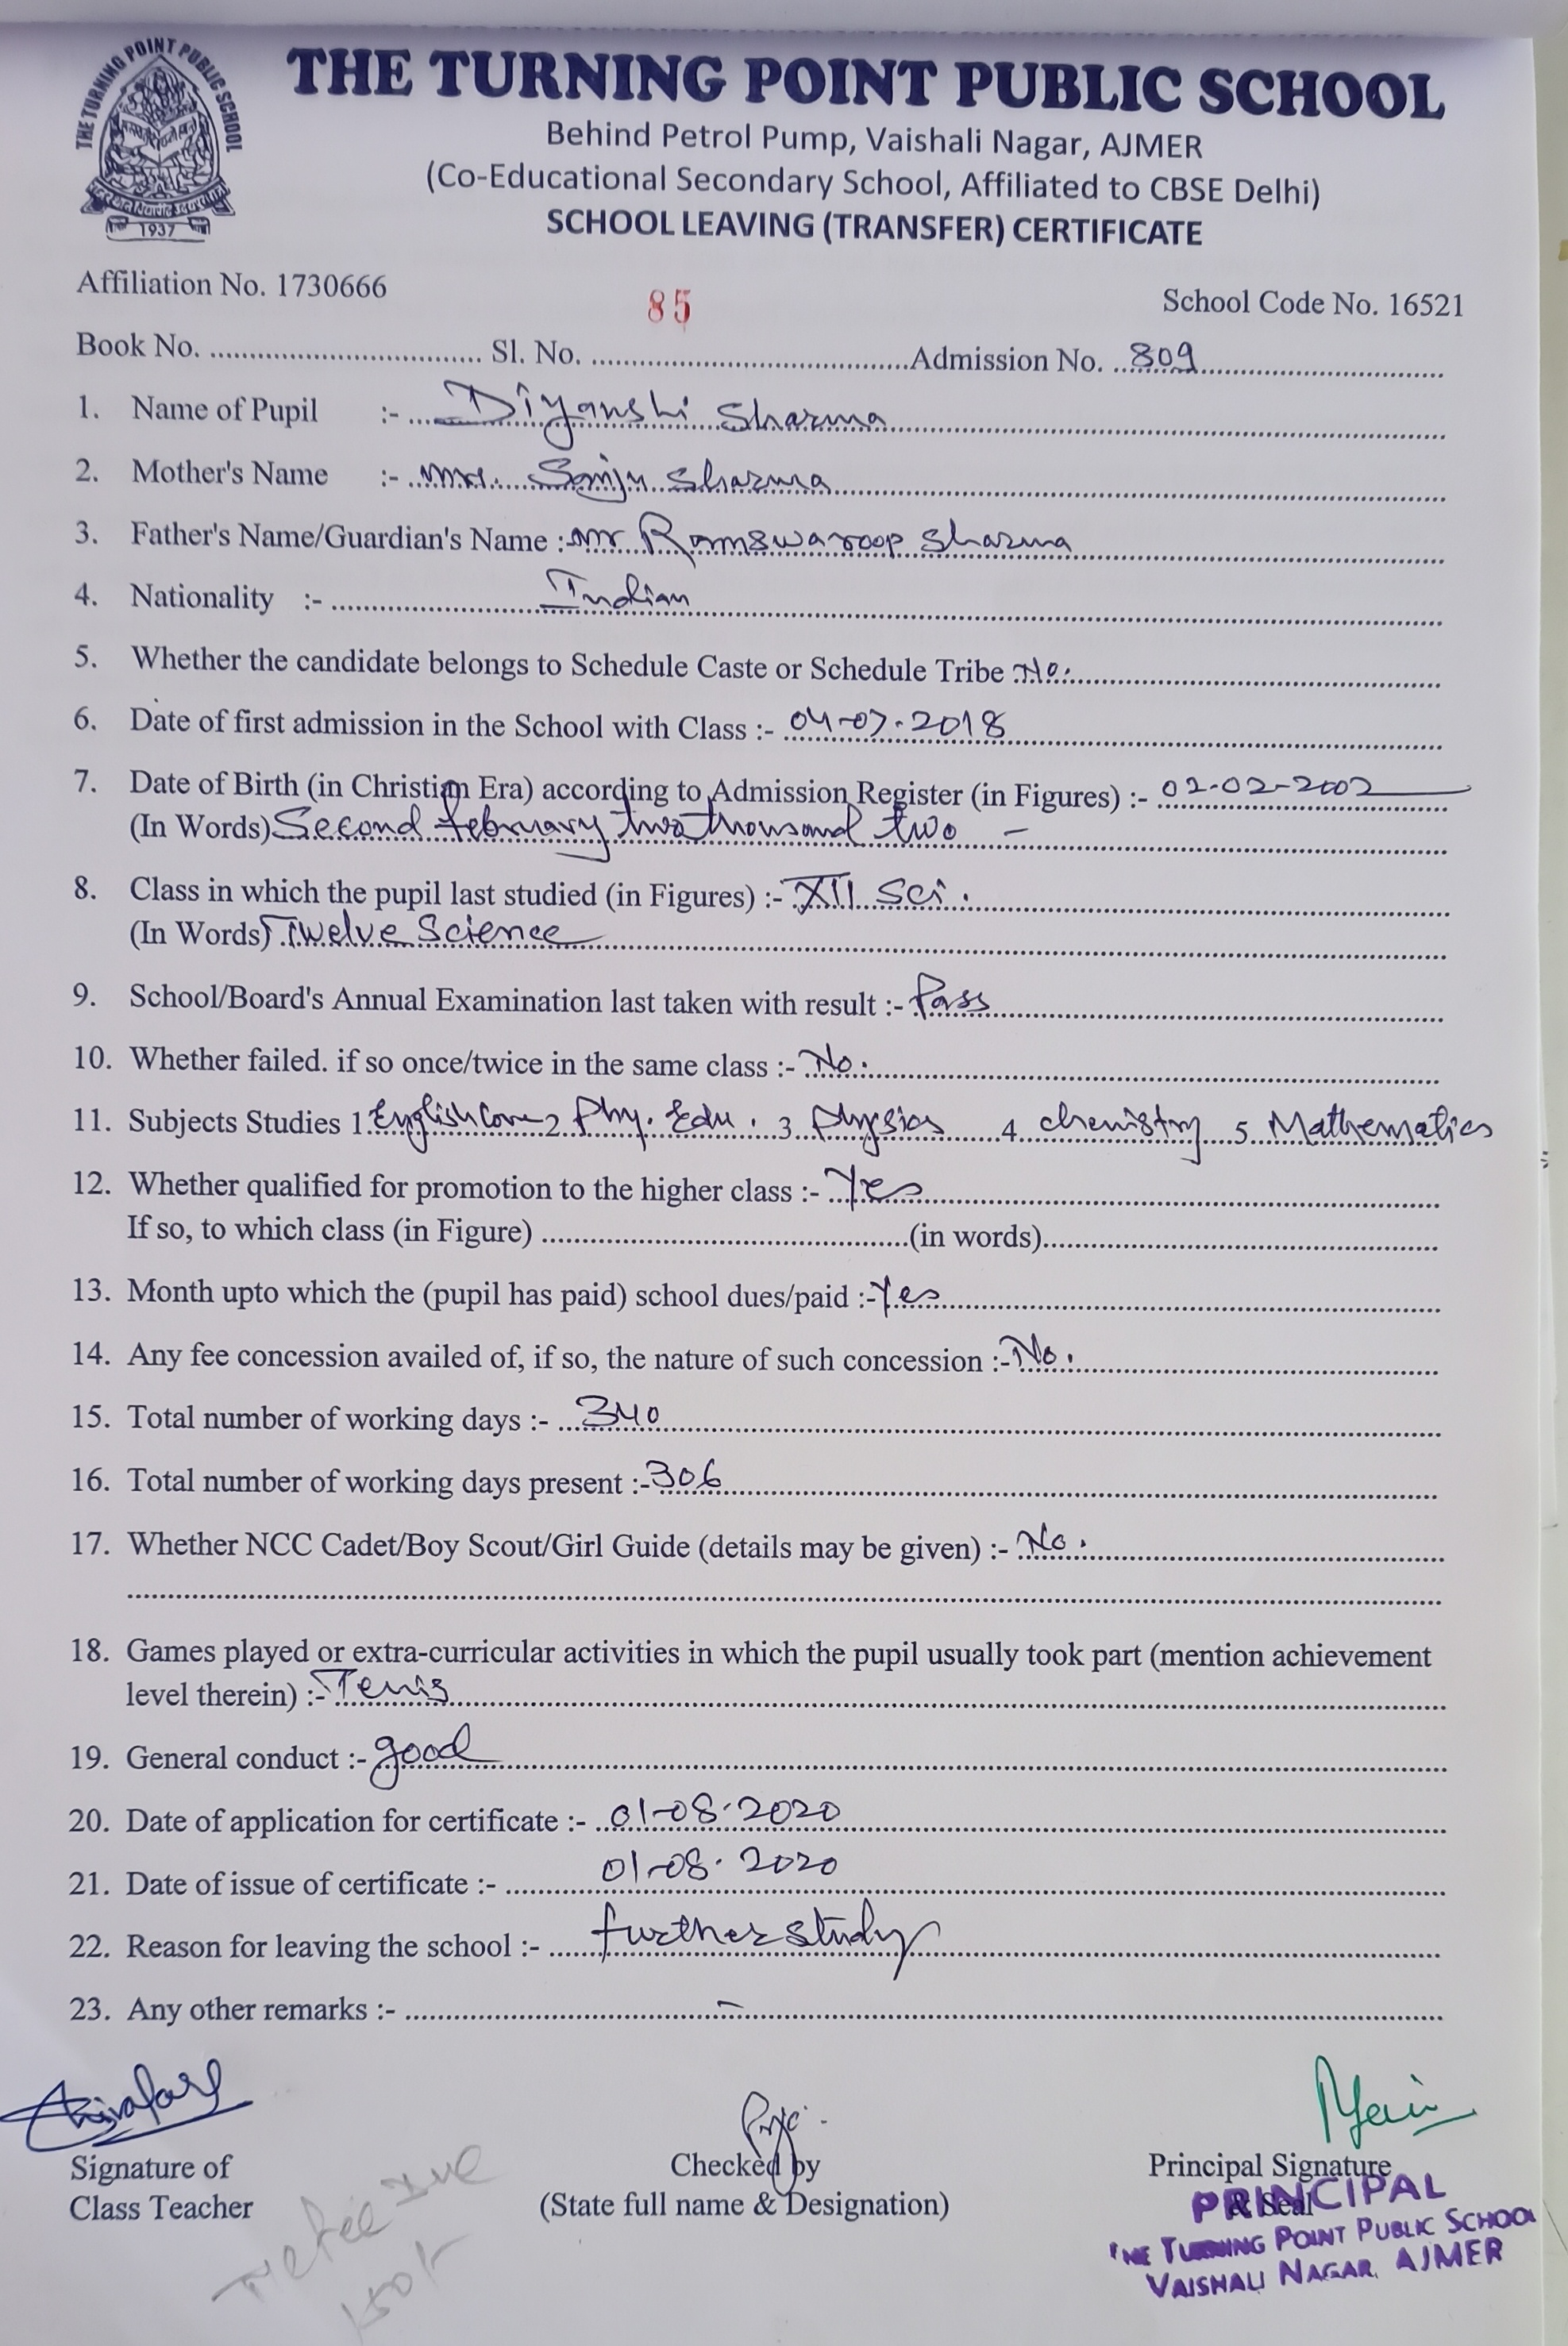 THE TURNING POINT PUBLIC SCHOOL
1937
THE TURNING POINT PUBLIC SCHOOL
Behind Petrol Pump, Vaishali Nagar, AJMER
(Co-Educational Secondary School, Affiliated to CBSE Delhi)
SCHOOL LEAVING (TRANSFER) CERTIFICATE
Affiliation No. 1730666 85 School Code No. 16521
Book No. Sl. No. Admission No. 809
1. Name of Pupil :- Diyanshi Sharma
2. Mother's Name :- Mrs. Sanju Sharma
3. Father's Name/Guardian's Name :- Mr Ramswaroop Sharma
4. Nationality :- Indian
5. Whether the candidate belongs to Schedule Caste or Schedule Tribe No.
6. Date of first admission in the School with Class :- 04-07-2018
7. Date of Birth (in Christian Era) according to Admission Register (in Figures) :- 02-02-2002
(In Words) Second february two thousand two -
8. Class in which the pupil last studied (in Figures) :- XII Sci.
(In Words) Twelve Science
9. School/Board's Annual Examination last taken with result :- Pass
10. Whether failed. if so once/twice in the same class :- No.
11. Subjects Studies 1 English Core 2 Phy. Edu. 3 Physics 4 chemistry 5 Mathematics
12. Whether qualified for promotion to the higher class :- Yes
If so, to which class (in Figure) (in words)
13. Month upto which the (pupil has paid) school dues/paid :- Yes
14. Any fee concession availed of, if so, the nature of such concession :- No.
15. Total number of working days :- 340
16. Total number of working days present :- 306
17. Whether NCC Cadet/Boy Scout/Girl Guide (details may be given) :- No.
18. Games played or extra-curricular activities in which the pupil usually took part (mention achievement
level therein) :- Tenis
19. General conduct :- good
20. Date of application for certificate :- 01-08-2020
21. Date of issue of certificate :- 01-08-2020
22. Reason for leaving the school :- further study
23. Any other remarks :- -
Signature of
Class Teacher
Checked by
(State full name & Designation)
Principal Signature
& Seal
PRINCIPAL
THE TURNING POINT PUBLIC SCHOOL
VAISHALI NAGAR, AJMER